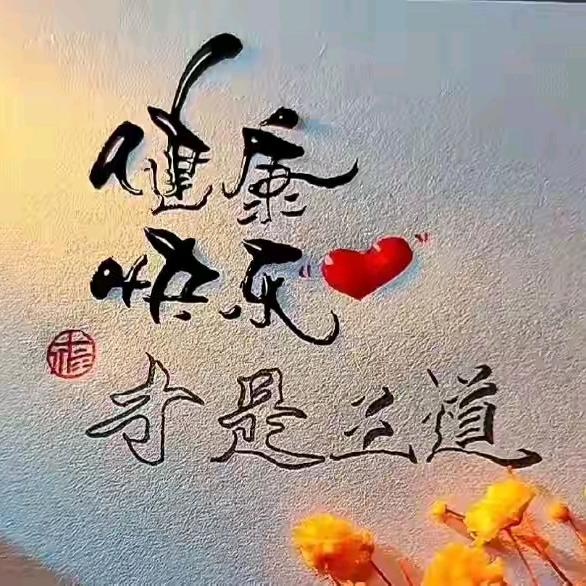 健康
快乐
才是王道